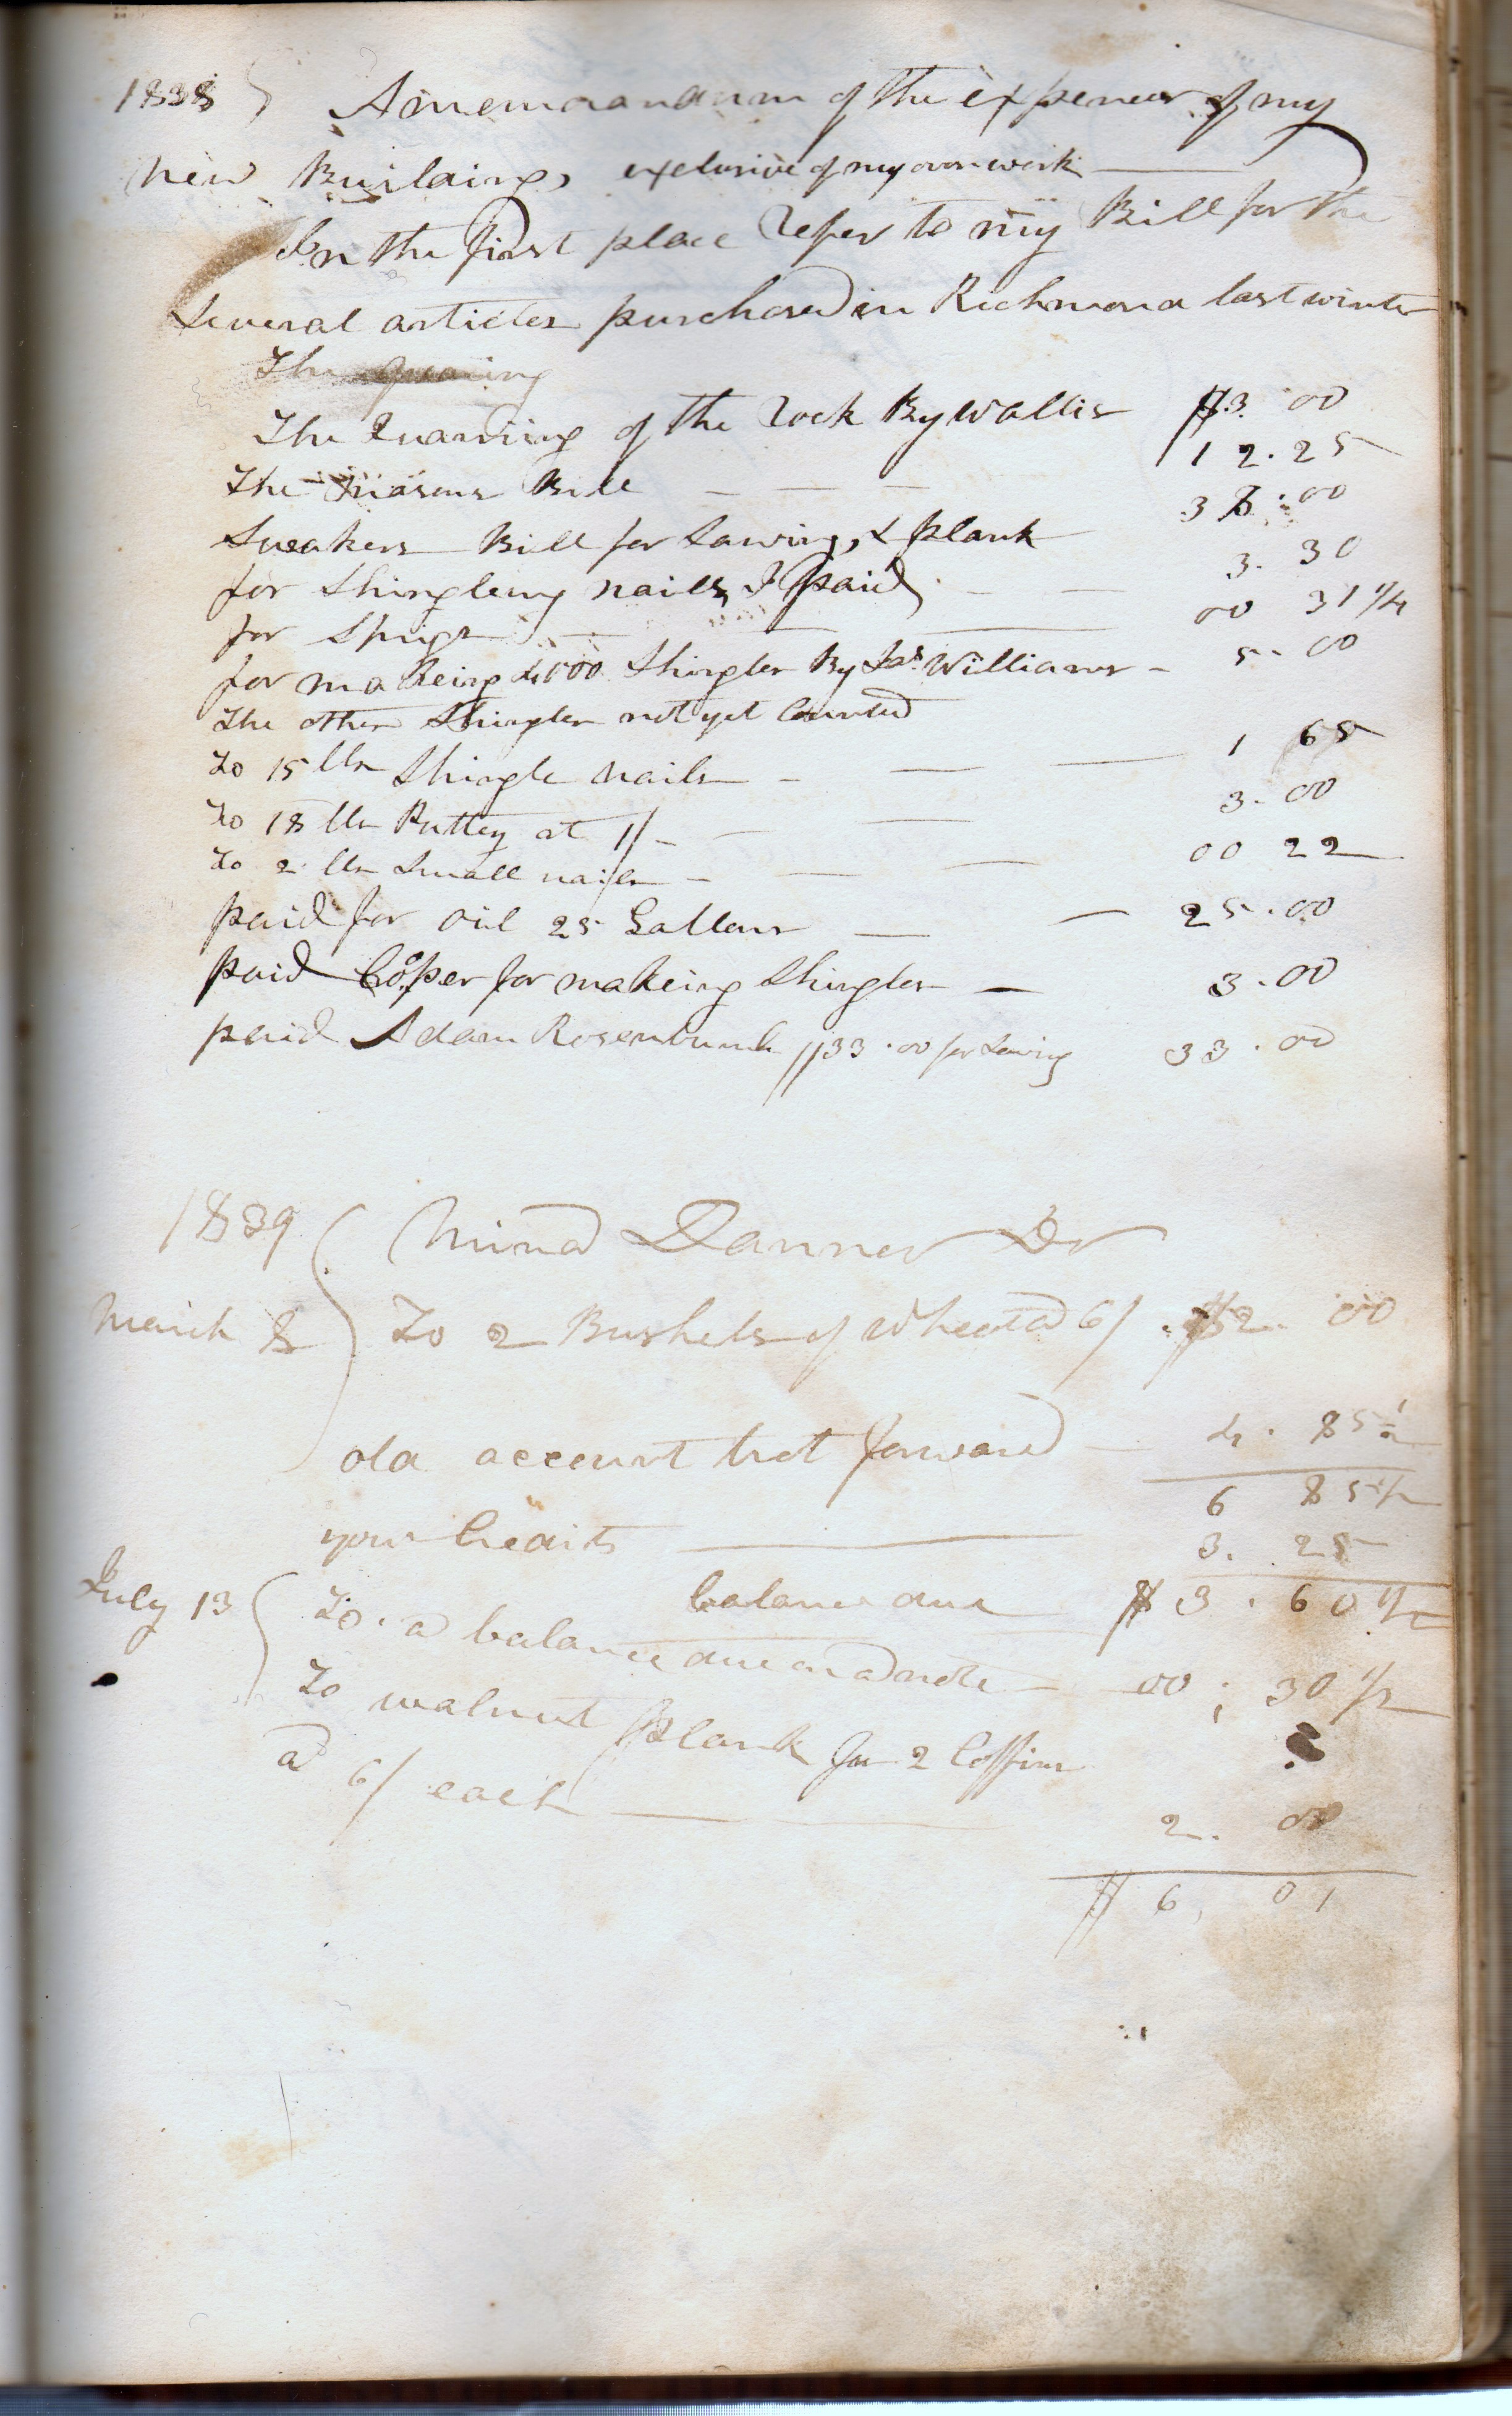 1838 } A memorandum of the expences of my
new Building, exclusive of my own work
In the first place Refer to my Bill for the
Several articles purchased in Richmond last winter
The
The Quarring of the Rock By Wallis $3. 00
The masons Bill 12.25
Bill for Sawing, & plank 38.00
for Shingleing nails, I paid 3. 30
for Sprigs 00 31 1/4
for makeing 4000 Shingles By Jas Williams 5. 00
The other Shingles not yet Counted
To 15 lbs Shingle nails 1 65
To 18 lbs Puttey at 1/ 3. 00
To 2 lbs Small nails 00 22
paid for oil 25 Gallons 25.00
paid Coper for makeing Shingles 3.00
paid Adam $33.00 for Sawing 33.00
1839 { Danner Dr
March 8 To 2 Bushels of Wheat a 6/ $2. 00
old account brot forward 4. 85 1/2
6 85 1/2
your Credits 3. 25
balance due $3.60 1/2
July 13 { To a balance due on a note 00 ; 30 1/2
To walnut plank for 2 Coffins
a 6/ each 2. 00
$6, 01